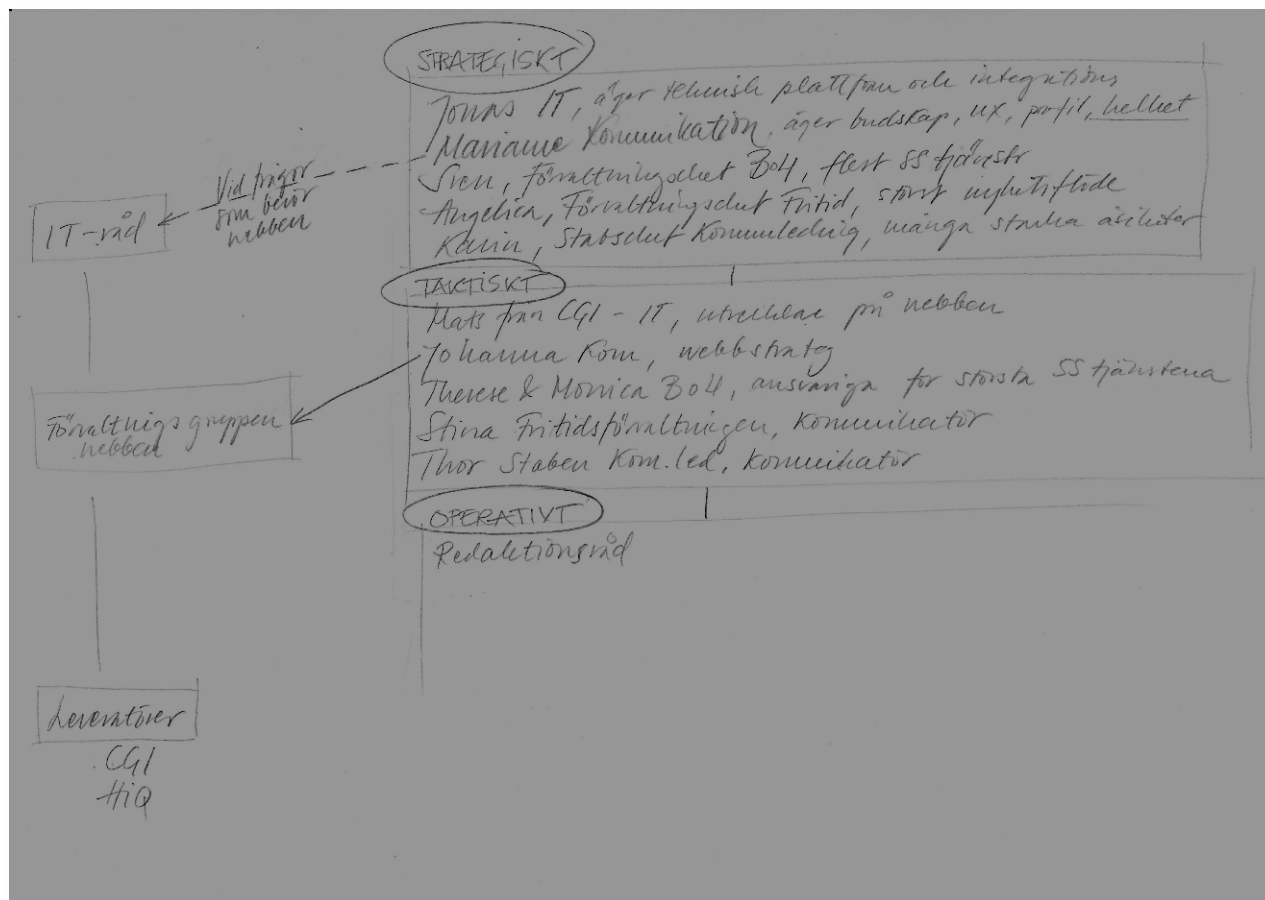 STRATEGISKT
Jonas IT, äger teknisk plattform och integrations
Marianne Kommunikation, äger budskap, UX, profil, helhet
Sven, Förvaltningschef BoU, flest SS tjänstr
Angelica, Förvaltningschef Fritid, störst nyhetsflöde
Karin, Stabschef Kommunledning, många starka åsikter
Vid frågor
som berör
webben
IT-råd
TAKTISKT
Mats från CGI - IT, utvecklare på webben
Johanna Kom, webbstrateg
Therese & Monica BoU, ansvariga för största SS tjänsterna
Stina Fritidsförvaltningen, Kommunikatör
Thor Staben Kom.led, Kommunikatör
Förvaltningsgruppen
webben
OPERATIVT
Redaktionsråd
Leverantörer
CGI
HiQ